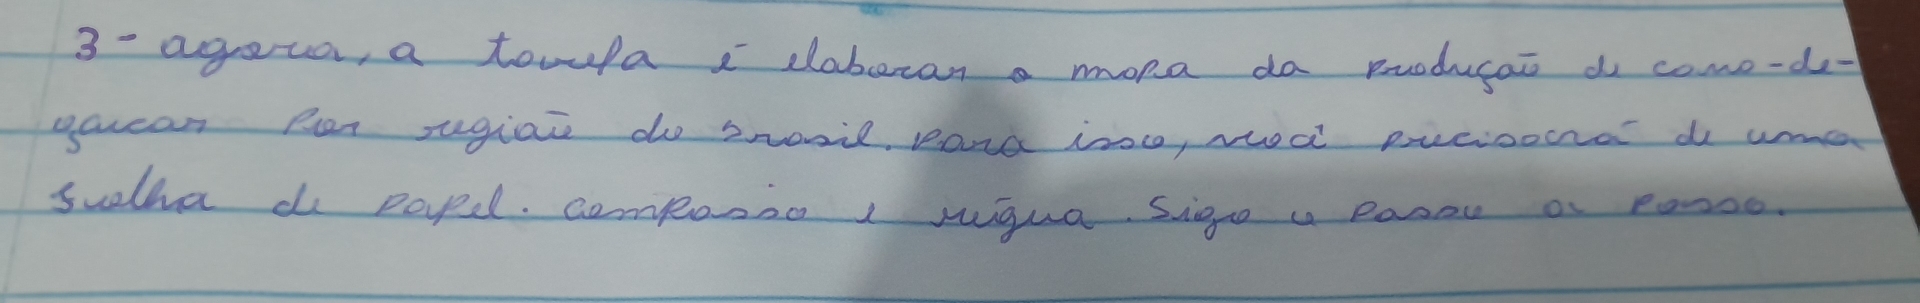 3- agora, a tarefa é elaborar o mapa da produção de cana-de-
açucar por região do Brasil. Para isso, você precisará de uma
folha de papel. compasso e régua. Siga o passo a passo.